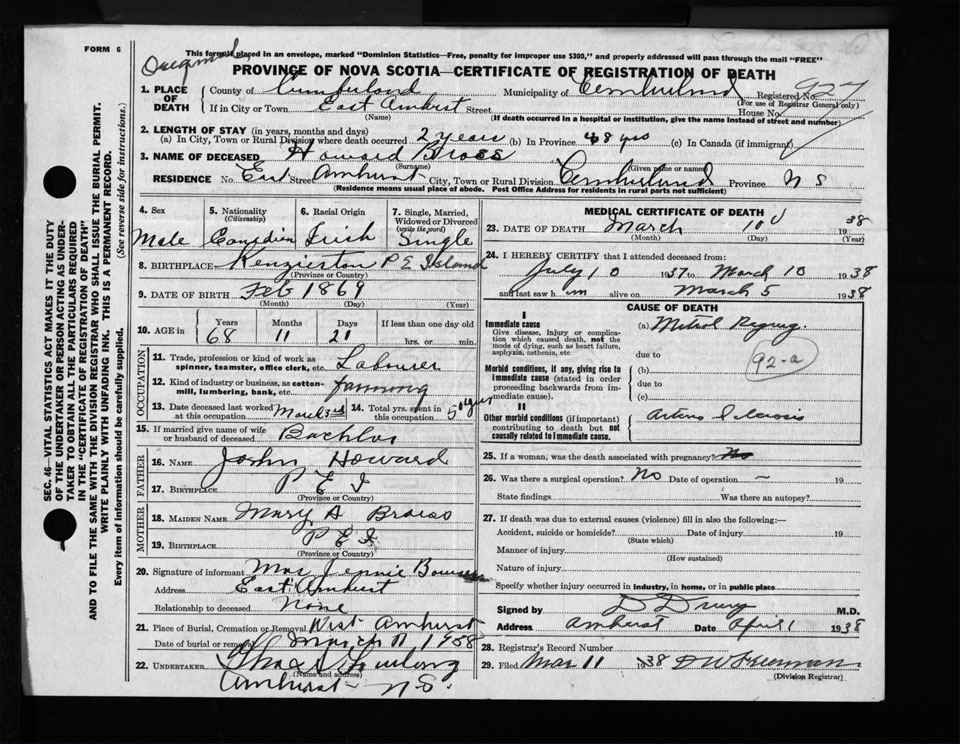 FORM 6
This form if placed in an envelope, marked "Dominion Statistics—Free, penalty for improper use $300," and properly addressed will pass through the mail "FREE"
Original
PROVINCE OF NOVA SCOTIA—CERTIFICATE OF REGISTRATION OF DEATH
1. PLACE OF DEATH County of Cumberland Municipality of Cumberland Registered No. 927
(For use of Registrar General only)
If in City or Town East Amherst Street House No.
(Name) (If death occurred in a hospital or institution, give the name instead of street and number)
2. LENGTH OF STAY (in years, months and days)
(a) In City, Town or Rural Division where death occurred 2 years (b) In Province 68 yrs (c) In Canada (if immigrant)
3. NAME OF DECEASED Howard
(Surname) (Given name or name)
RESIDENCE No. East Street Amherst City, Town or Rural Division Cumberland Province N S
(Residence means usual place of abode. Post Office Address for residents in rural parts not sufficient)
SEC. 46—VITAL STATISTICS ACT MAKES IT THE DUTY
OF THE UNDERTAKER OR PERSON ACTING AS UNDER-
TAKER TO OBTAIN ALL THE PARTICULARS REQUIRED
IN THE "CERTIFICATE OF REGISTRATION OF DEATH"
AND TO FILE THE SAME WITH THE DIVISION REGISTRAR WHO SHALL ISSUE THE BURIAL PERMIT.
WRITE PLAINLY WITH UNFADING INK. THIS IS A PERMANENT RECORD.
Every item of information should be carefully supplied. (See reverse side for instructions.)
4. Sex Male
5. Nationality (Citizenship) Canadian
6. Racial Origin Irish
7. Single, Married, Widowed or Divorced (write the word) Single
8. BIRTHPLACE P E Island
(Province or Country)
9. DATE OF BIRTH Feb 1869
(Month) (Day) (Year)
10. AGE in Years 68 Months 11 Days 21 If less than one day old hrs. or min.
OCCUPATION
11. Trade, profession or kind of work as spinner, teamster, office clerk, etc. Labourer
12. Kind of industry or business, as cotton-mill, lumbering, bank, etc. farming
13. Date deceased last worked at this occupation March 3rd 14. Total yrs. spent in this occupation 50 yrs
15. If married give name of wife or husband of deceased Bachlor
FATHER
16. NAME John Howard
17. BIRTHPLACE P E I
(Province or Country)
MOTHER
18. MAIDEN NAME Mary A
19. BIRTHPLACE P E I
(Province or Country)
20. Signature of informant Mrs Jennie
Address East Amherst
Relationship to deceased None
21. Place of Burial, Cremation or Removal West Amherst
Date of burial or removal March 11 1938
22. UNDERTAKER
(Name and address)
Amherst N.S.
MEDICAL CERTIFICATE OF DEATH
23. DATE OF DEATH March 10 1938
(Month) (Day) (Year)
24. I HEREBY CERTIFY that I attended deceased from:
July 10 1937 to March 10 1938
and last saw him alive on March 5 1938
CAUSE OF DEATH
I
Immediate cause (a) Mitral Regurg.
Give disease, injury or complication which caused death, not the mode of dying, such as heart failure, asphyxia, asthenia, etc
due to
92-a
Morbid conditions, if any, giving rise to immediate cause (stated in order proceeding backwards from immediate cause). (b)
due to
(c)
II
Other morbid conditions (if important) contributing to death but not causally related to immediate cause.
25. If a woman, was the death associated with pregnancy? No
26. Was there a surgical operation? No Date of operation — 19
State findings Was there an autopsy?
27. If death was due to external causes (violence) fill in also the following:—
Accident, suicide or homicide? Date of injury 19
(State which)
Manner of injury
(How sustained)
Nature of injury
Specify whether injury occurred in industry, in home, or in public place
Signed by D Drury M.D.
Address Amherst Date April 1 1938
28. Registrar's Record Number
29. Filed Mar 11 1938
(Division Registrar)